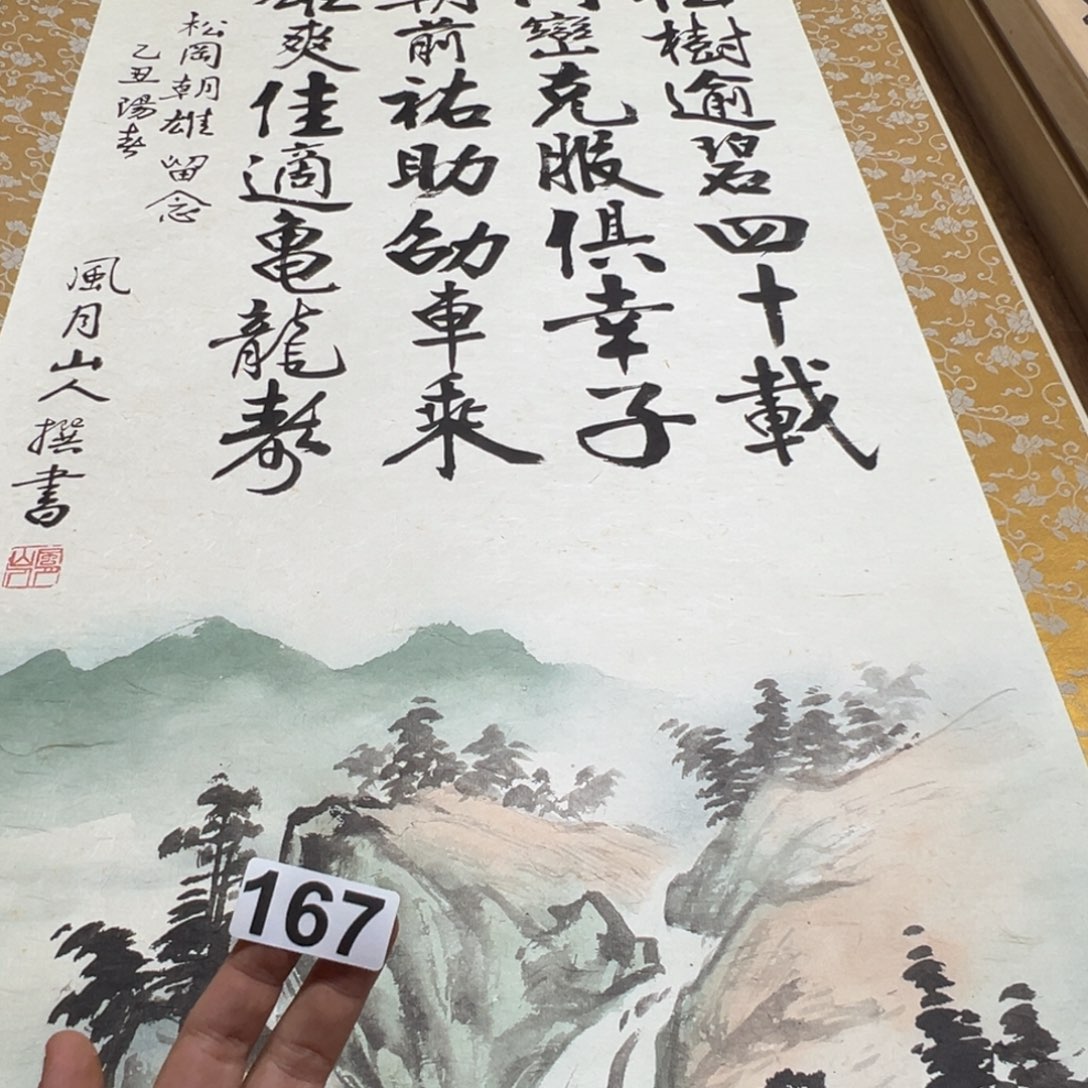 松樹逾碧四十載
岡巒克服俱幸子
朝前祐助劭車乘
雄爽佳適亀龍壽
松岡朝雄 留念
乙丑陽春
風月山人撰書
167